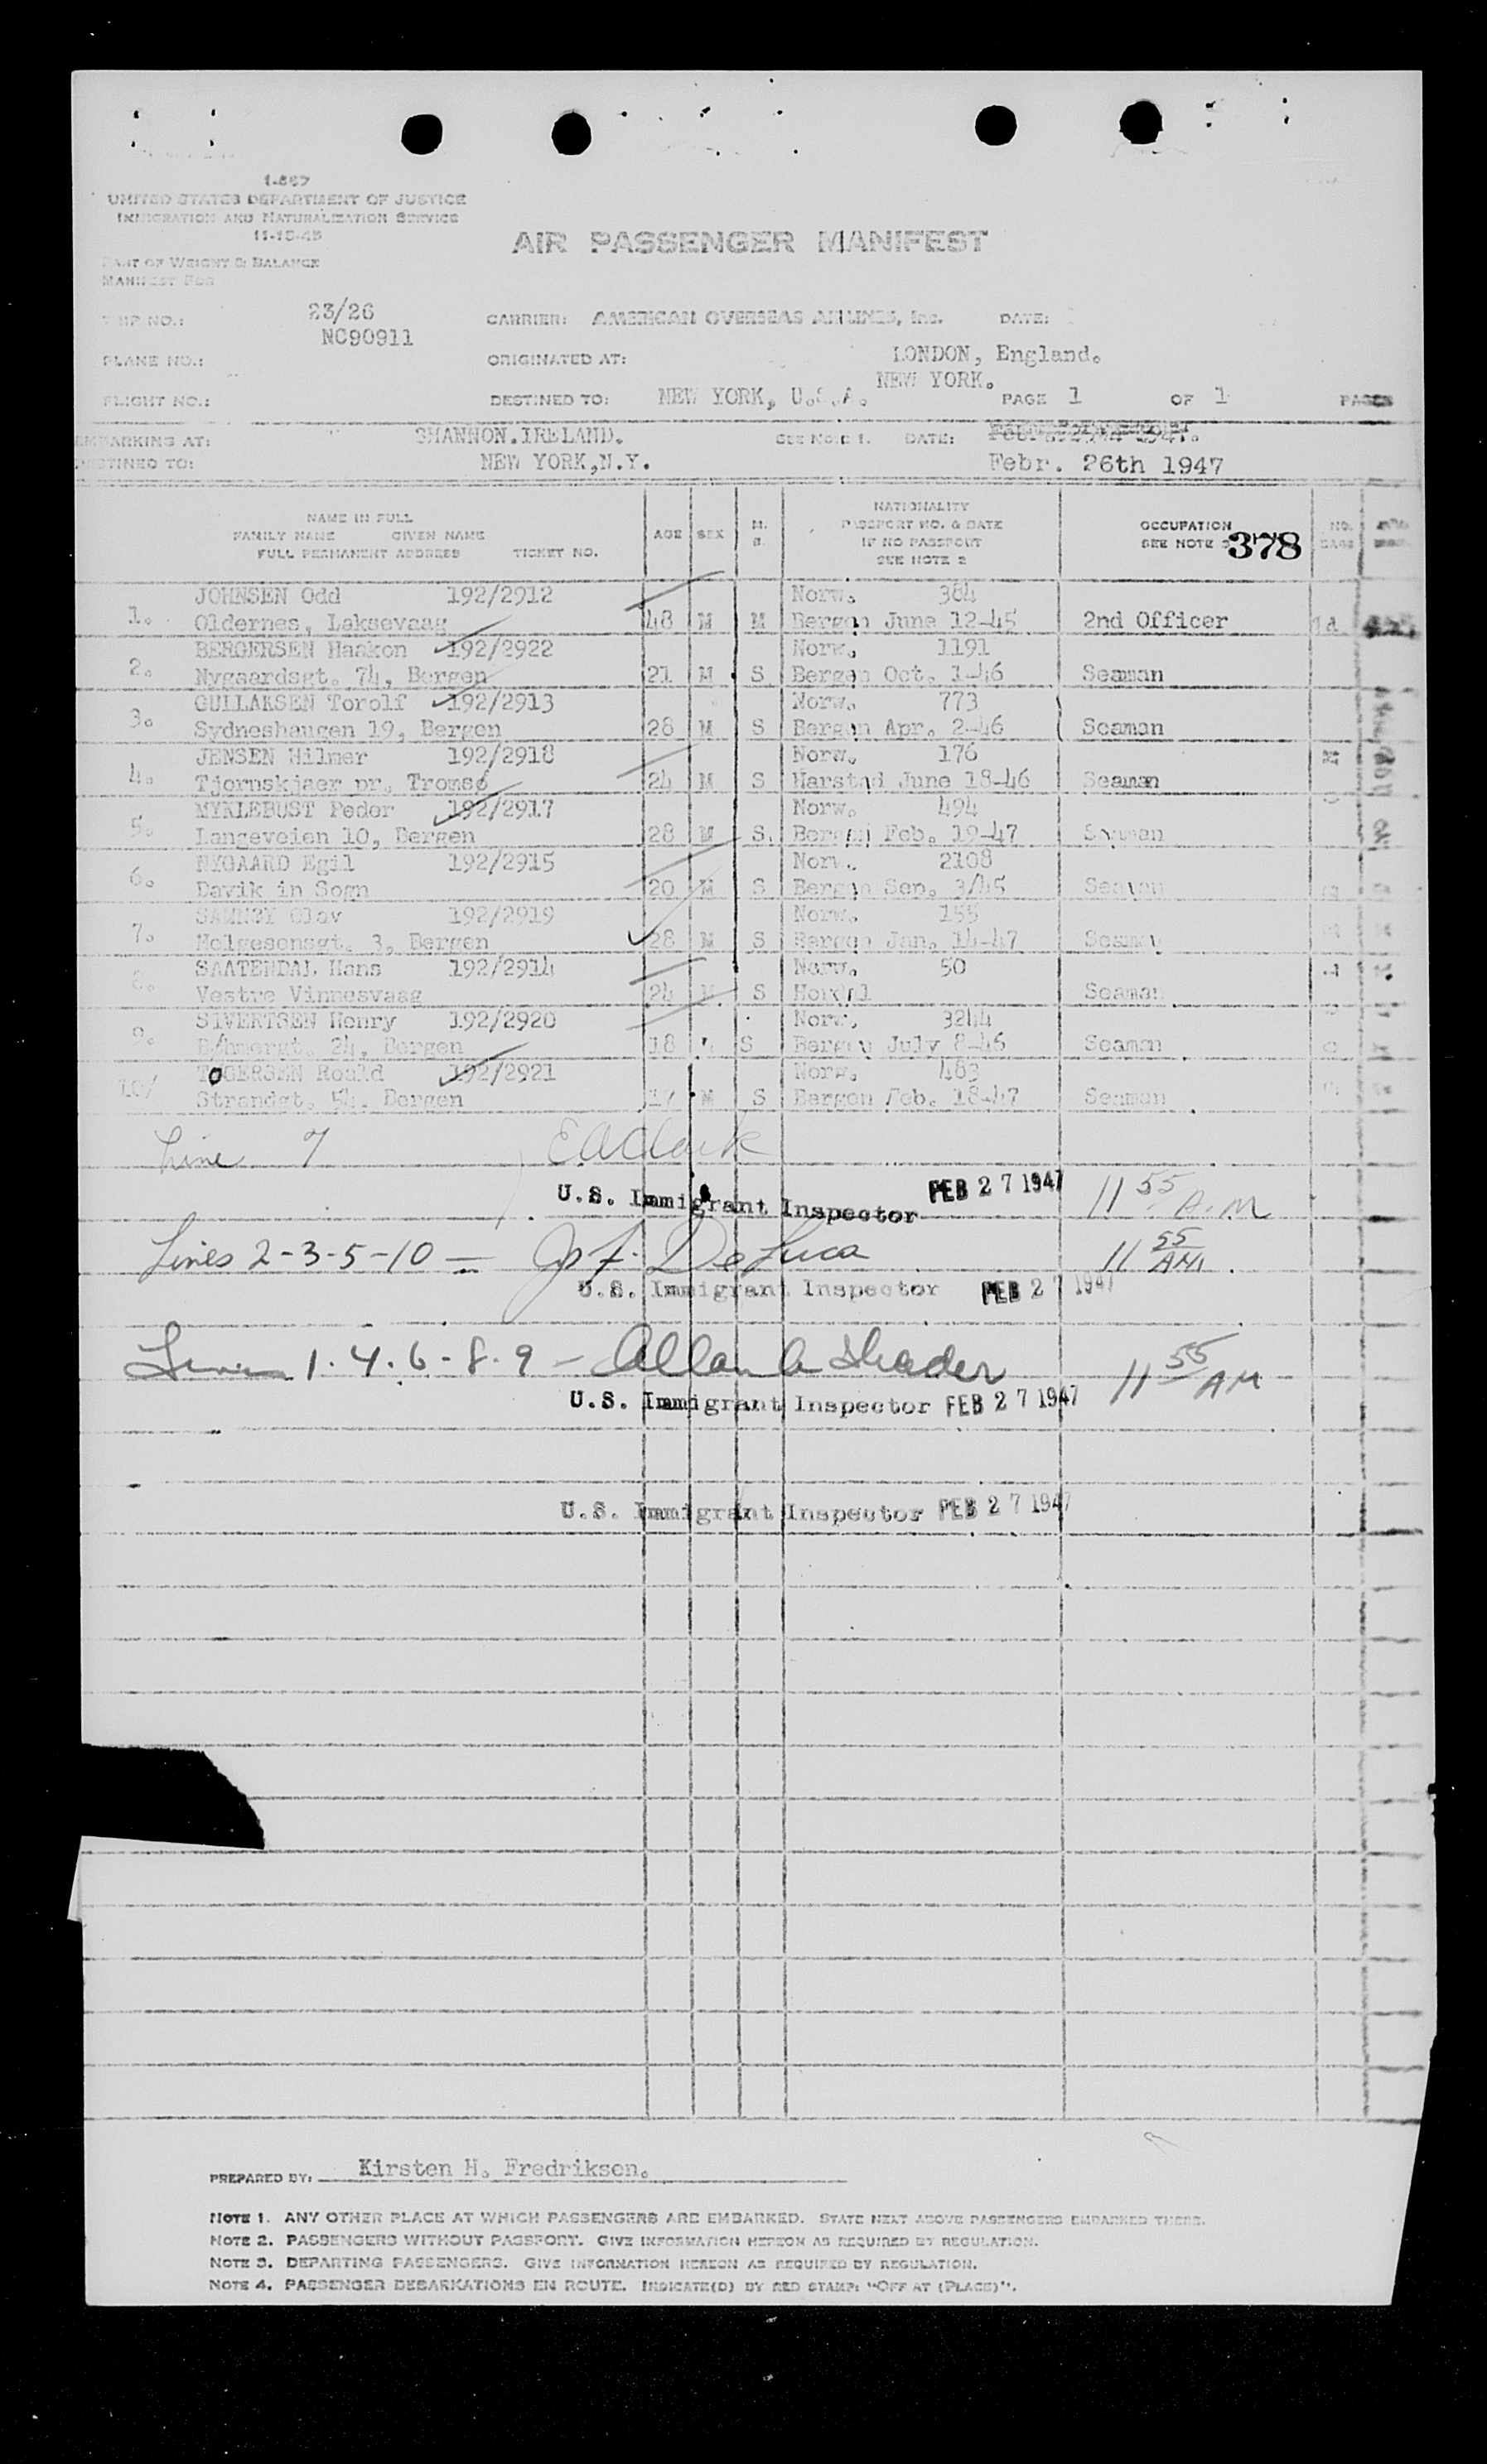 1-557
UNITED STATES DEPARTMENT OF JUSTICE
IMMIGRATION AND NATURALIZATION SERVICE
11-15-45
AIR PASSENGER MANIFEST
PART OF WEIGHT & BALANCE
MANIFEST FOR
TRIP NO.: 23/26 CARRIER: AMERICAN OVERSEAS AIRLINES, INC. DATE:
NC90911
PLANE NO.: ORIGINATED AT: LONDON, England.
NEW YORK.
FLIGHT NO.: DESTINED TO: NEW YORK, U.S.A. PAGE 1 OF 1 PAGES
EMBARKING AT: SHANNON.IRELAND. SEE NOTE 1. DATE:
DESTINED TO: NEW YORK,N.Y. Febr. 26th 1947
NAME IN FULL
FAMILY NAME GIVEN NAME
FULL PERMANENT ADDRESS TICKET NO.
AGE SEX M. S.
NATIONALITY
PASSPORT NO. & DATE
IF NO PASSPORT
SEE NOTE 2
OCCUPATION
SEE NOTE 3
378
NO. BAGS
JOHNSEN Odd 192/2912 Norw. 384
1. Oldernes, Laksevaag 48 M M Bergen June 12-45 2nd Officer
BERGERSEN Haakon 192/2922 Norw. 1191
2. Nygaardsgt. 74, Bergen 21 M S Bergen Oct. 1-46 Seaman
GULLAKSEN Torolf 192/2913 Norw. 773
3. Sydneshaugen 19, Bergen 28 M S Bergen Apr. 2-46 Seaman
JENSEN Hilmer 192/2918 Norw. 176
4. Tjornskjaer pr. Tromsø 24 M S Harstad June 18-46 Seaman
MYKLEBUST Peder 192/2917 Norw. 494
5. Langeveien 10, Bergen 28 M S. Bergen Feb. 19-47 Seaman
NYGAARD Egil 192/2915 Norw. 2108
6. Davik in Sogn 20 M S Bergen Sep. 3/45 Seaman
Olav 192/2919 Norw. 155
7. Holgesensgt. 3, Bergen 28 M S Bergen Jan. 14-47 Seaman
SAATENDAL Hans 192/2914 Norw. 50
8. Vestre Vinnesvaag 24 M S Seaman
SIVERTSEN Henry 192/2920 Norw. 3244
9. 24, Bergen 18 S Bergen July 8-46 Seaman
Roald 192/2921 Norw. 483
10/ Strandgt. 54. Bergen 17 M S Bergen Feb. 18-47 Seaman
Line 7 E A Clark
U.S. Immigrant Inspector FEB 27 1947 11 55 A.M
Lines 2-3-5-10 — Jo F. De Luca 11 55 AM
U.S. Immigrant Inspector FEB 27 1947
Lines 1.4.6-8.9 — Allan A Shader 11 55 AM
U.S. Immigrant Inspector FEB 27 1947
U.S. Immigrant Inspector FEB 27 1947
PREPARED BY: Kirsten H. Fredriksen.
NOTE 1. ANY OTHER PLACE AT WHICH PASSENGERS ARE EMBARKED. STATE NEXT ABOVE PASSENGERS EMBARKED THERE.
NOTE 2. PASSENGERS WITHOUT PASSPORT. GIVE INFORMATION HEREON AS REQUIRED BY REGULATION.
NOTE 3. DEPARTING PASSENGERS. GIVE INFORMATION HEREON AS REQUIRED BY REGULATION.
NOTE 4. PASSENGER DEBARKATIONS EN ROUTE. INDICATE(D) BY RED STAMP: "OFF AT (PLACE)".